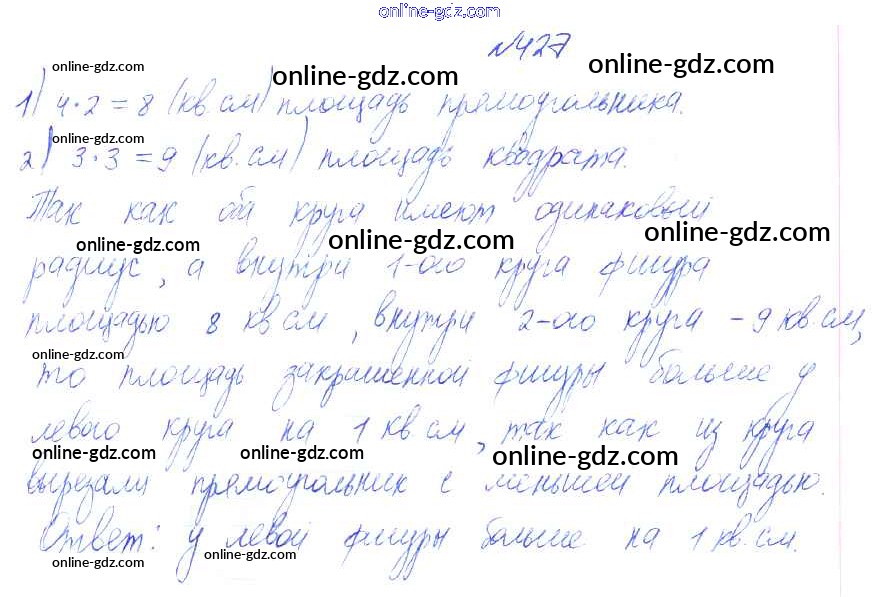 online-gdz.com
№427
online-gdz.com online-gdz.com online-gdz.com
1) 4·2=8 (кв.см) площадь прямоугольника.
online-gdz.com
2) 3·3=9 (кв.см) площадь квадрата.
Так как оба круга имеют одинаковый
online-gdz.com online-gdz.com online-gdz.com
радиус, а внутри 1-ого круга фигура
площадью 8 кв см, внутри 2-ого круга - 9 кв.см,
online-gdz.com
то площадь закрашенной фигуры больше у
левого круга на 1 кв.см, так как из круга
online-gdz.com online-gdz.com online-gdz.com
вырезали прямоугольник с меньшей площадью.
Ответ: у левой фигуры больше на 1 кв.см.
online-gdz.com online-gdz.com online-gdz.com